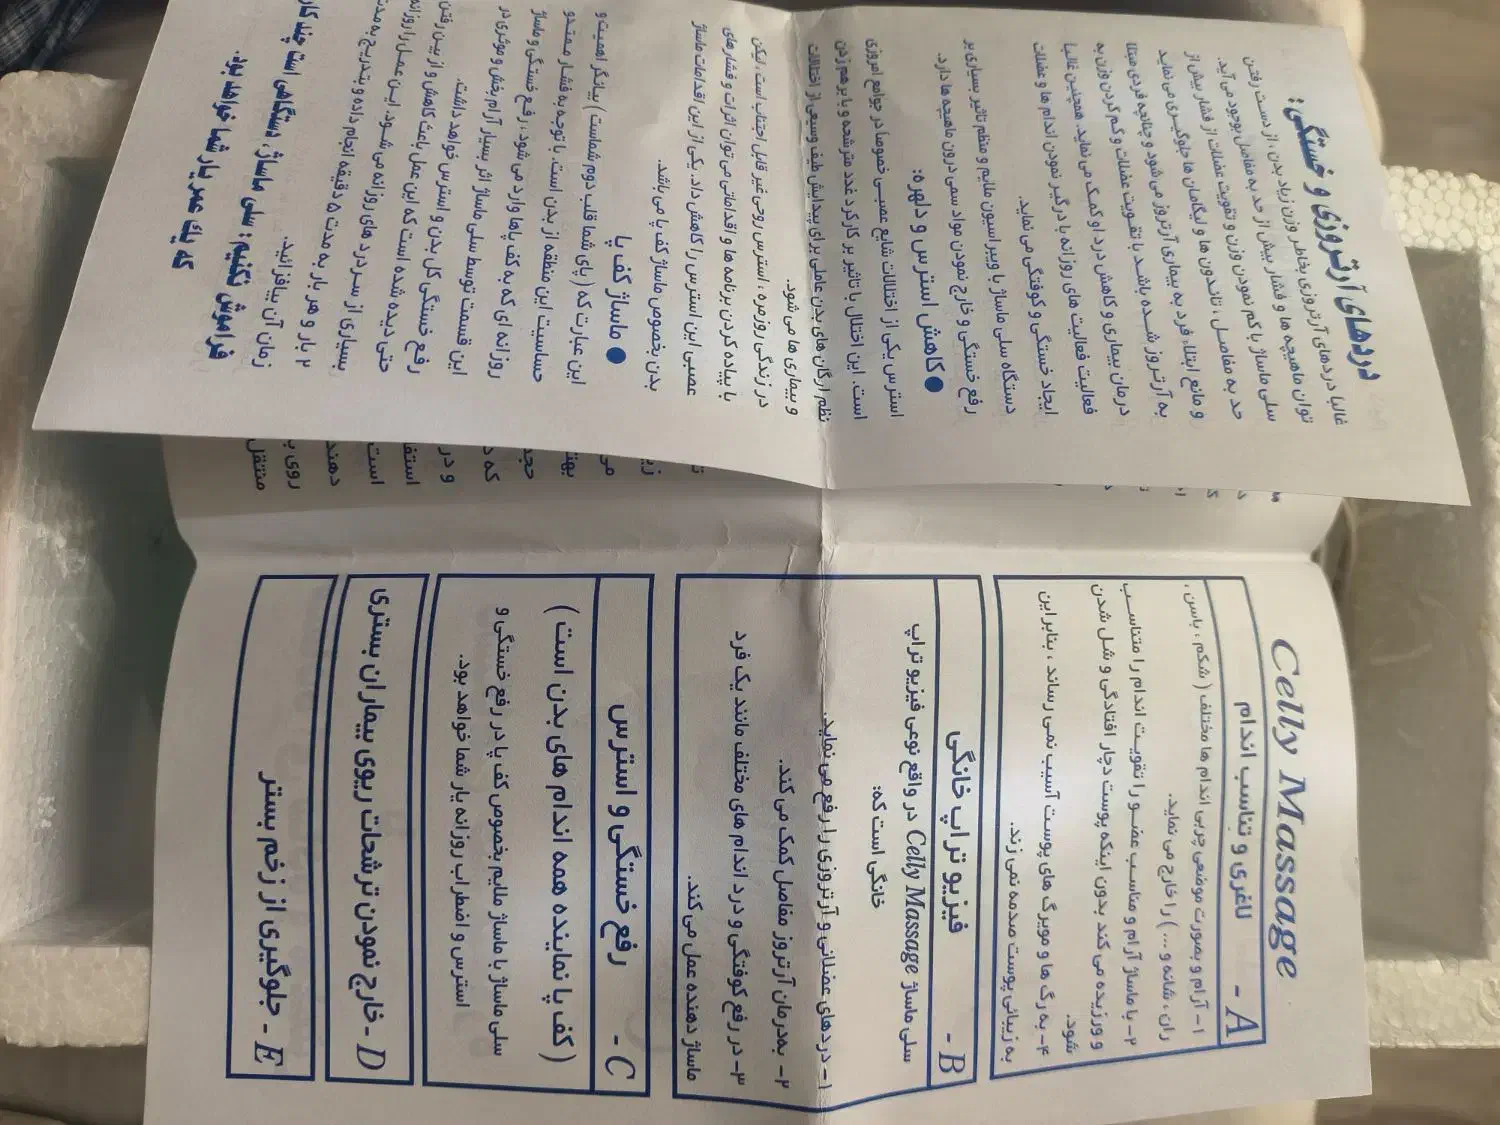 دردهای آرتروزی و خستگی:
غالبا دردهای آرتروزی بخاطر وزن زیاد بدن ، از دست رفتن
توان ماهیچه ها و فشار بیش از حد به مفاصل بوجود می آید.
سلی ماساژ با کم نمودن وزن و تقویت عضلات از فشار بیش از
حد به مفاصل ، تاندون ها و لیگامان ها جلوگیری می نماید
و مانع ابتلاء فرد به بیماری آرتروز می شود و چنانچه فردی مبتلا
به آرتروز شده باشد با تقویت عضلات و کم کردن وزن به
درمان بیماری و کاهش درد او کمک می نماید. همچنین غالبا
فعالیت فعالیت های روزانه با درگیر نمودن اندام ها و عضلات
ایجاد خستگی و کوفتگی می نماید.
دستگاه سلی ماساژ با ویبراسیون ملایم و منظم تاثیر بسیاری بر
رفع خستگی و خارج نمودن مواد سمی درون ماهیچه ها دارد.
● کاهش استرس و دلهره:
استرس یکی از اختلالات شایع عصبی خصوصا در جوامع امروزی
است. این اختلال با تاثیر بر کارکرد غدد مترشحه و با بر هم زدن
نظم ارگان های بدن عاملی برای پیدایش طیف وسیعی از اختلالات
و بیماری ها می شود.
در زندگی روزمره ، استرس روحی غیر قابل اجتناب است ، لیکن
با پیاده کردن برنامه ها و اقداماتی می توان اثرات و فشارهای
عصبی این استرس را کاهش داد. یکی از این اقدامات ماساژ
بدن بخصوص ماساژ کف پا می باشد.
● ماساژ کف پا
این عبارت که ( پای شما قلب دوم شماست ) بیانگر اهمیت و
حساسیت این منطقه از بدن است. با توجه به فشار ممتد و
روزانه ای که به کف پاها وارد می شود ، رفع خستگی و ماساژ
این قسمت توسط سلی ماساژ اثر بسیار آرام بخش و موثری در
رفع خستگی کل بدن و استرس خواهد داشت.
حتی دیده شده است که این عمل باعث کاهش و از بین رفتن
بسیاری از سردرد های روزانه می شود. این عمل را روزانه
۲ بار و هر بار به مدت ۵ دقیقه انجام داده و بتدریج به مدت
زمان آن بیافزائید.
فراموش نکنیم : سلی ماساژ ، دستگاهی است چند کاره
که یك عمر یار شما خواهد بود.
و در
استفا
است
دهند
روی
منتقل
Celly Massage
A - لاغری و تناسب اندام
۱- آرام و بصورت موضعی چربی اندام ها مختلف ( شکم ، باسن ،
ران ، شانه و ... ) را خارج می نماید.
۲- با ماساژ آرام و مناسب عضو را تقویت اندام را متناسب
و ورزیده می کند بدون اینکه پوست دچار افتادگی و شل شدن
شود.
۴- به رگ ها و مویرگ های پوست آسیب نمی رساند ، بنابراین
به زیبائی پوست صدمه نمی زند.
B - فیزیو تراپ خانگی
سلی ماساژ Celly Massage در واقع نوعی فیزیو تراپ
خانگی است که:
۱- دردهای عضلانی و آرتروزی را رفع می نماید.
۲- به‌درمان آرتروز مفاصل کمک می کند.
۳- در رفع کوفتگی و درد اندام های مختلف مانند یک فرد
ماساژ دهنده عمل می کند.
C - رفع خستگی و استرس
( کف پا نماینده همه اندام های بدن است )
سلی ماساژ با ماساژ ملایم بخصوص کف پا در رفع خستگی و
استرس و اضطراب روزانه یار شما خواهد بود.
D - خارج نمودن ترشحات ریوی بیماران بستری
E - جلوگیری از زخم بستر